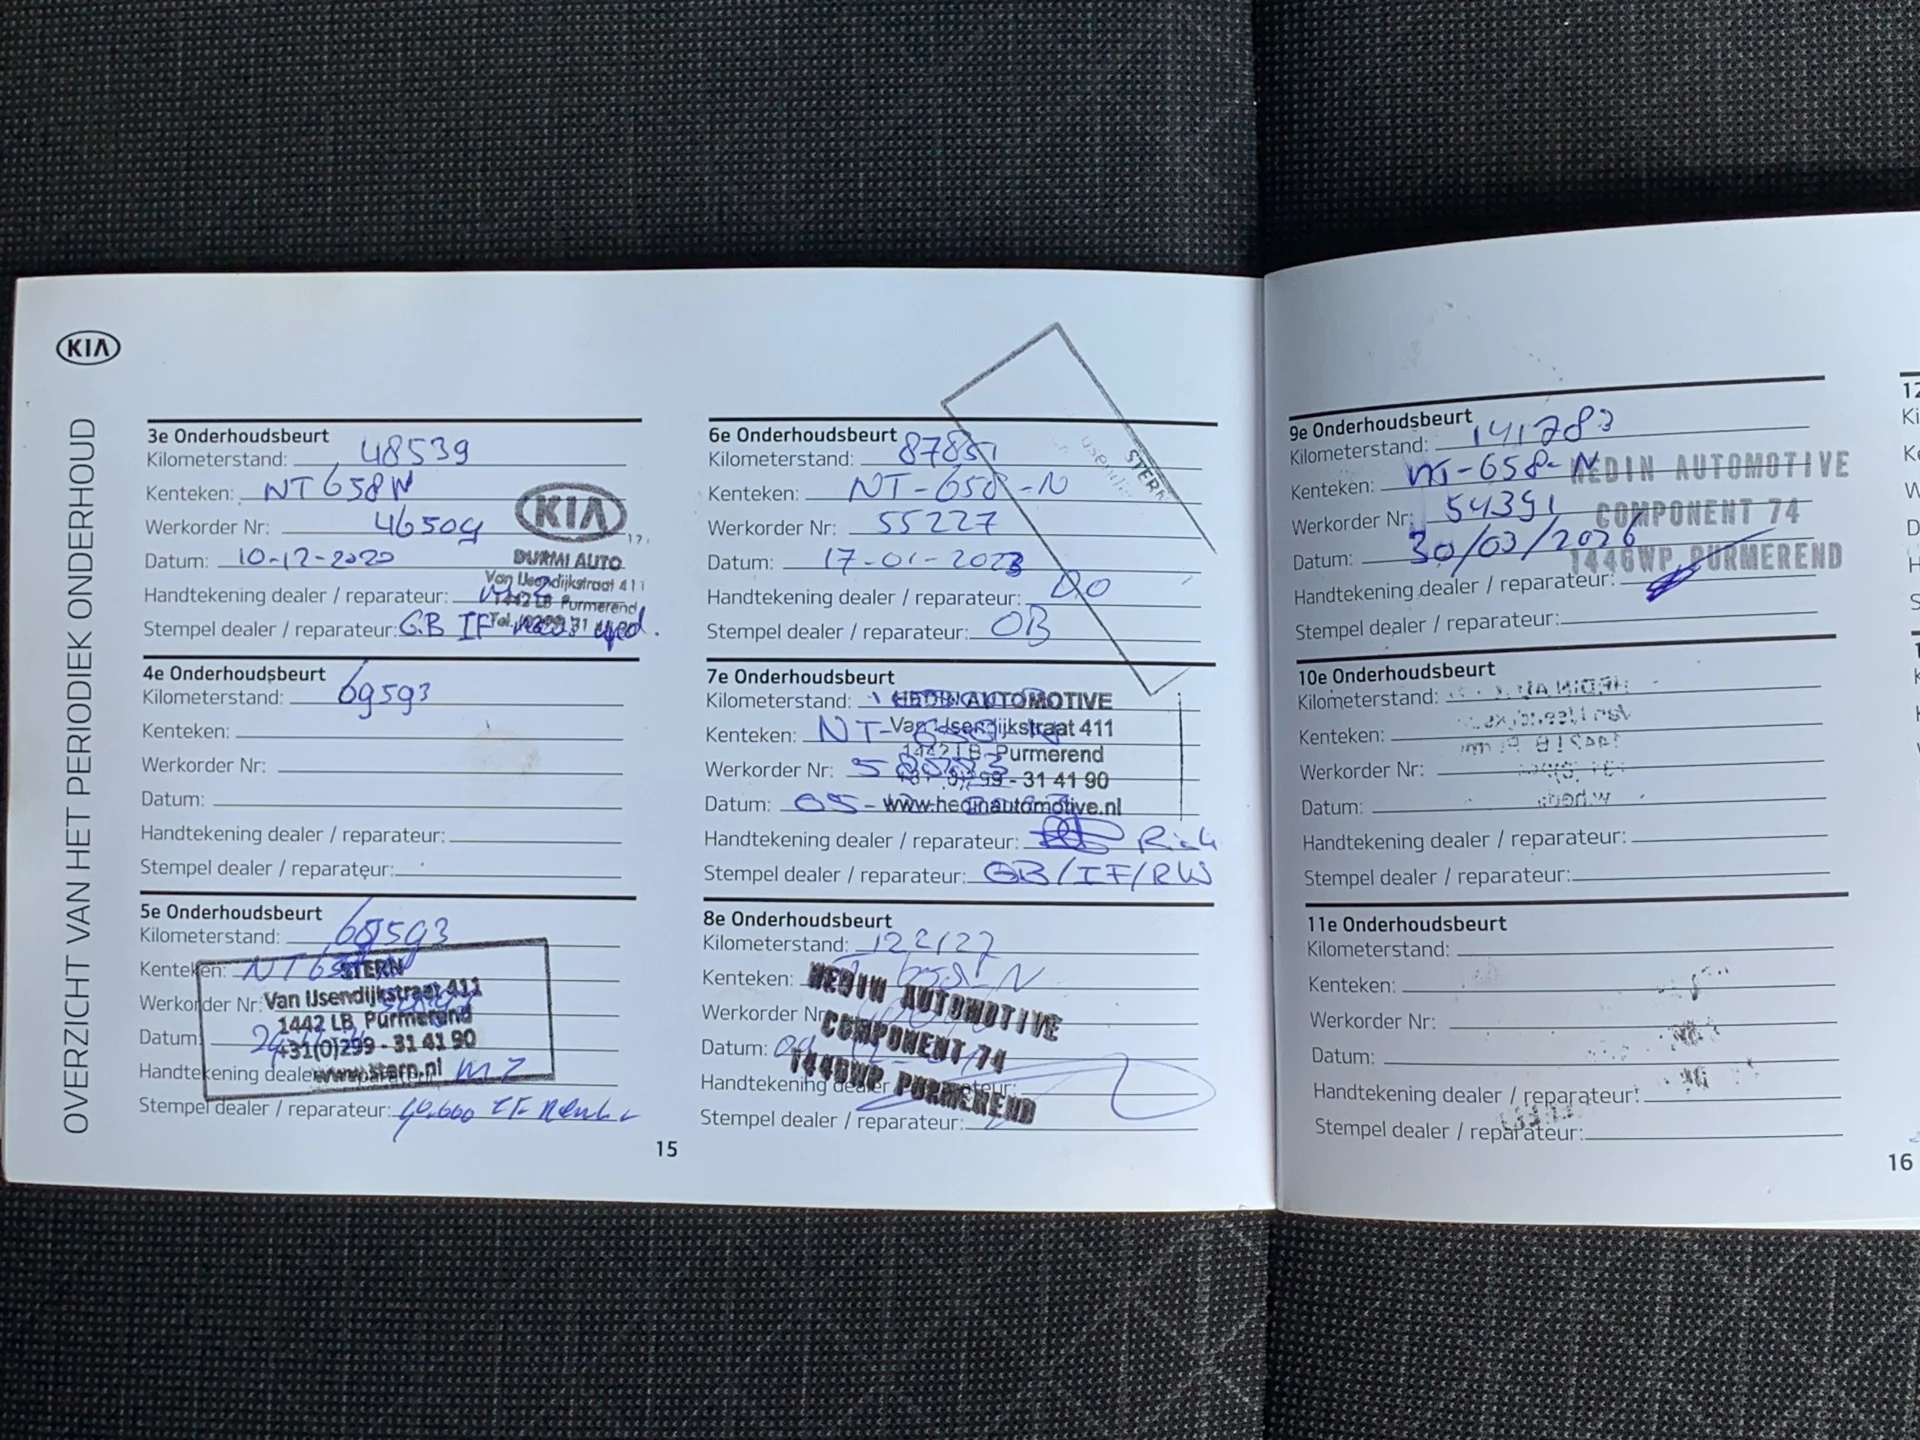 KIA
OVERZICHT VAN HET PERIODIEK ONDERHOUD
3e Onderhoudsbeurt
Kilometerstand: 48539
Kenteken: NT658N
Werkorder Nr: 46509
Datum: 10-12-2020
Handtekening dealer / reparateur:
Stempel dealer / reparateur: GB IF
KIA
DURMI AUTO
Van IJsendijkstraat 411
1442 LB Purmerend
4e Onderhoudsbeurt
Kilometerstand: 69593
Kenteken:
Werkorder Nr:
Datum:
Handtekening dealer / reparateur:
Stempel dealer / reparateur:
5e Onderhoudsbeurt
Kilometerstand: 69593
Kenteken:
Werkorder Nr:
Datum:
Handtekening dealer / reparateur: MZ
Stempel dealer / reparateur:
STERN
Van IJsendijkstraat 411
1442 LB Purmerend
+31(0)299 - 31 41 90
www.stern.nl
15
6e Onderhoudsbeurt
Kilometerstand: 87851
Kenteken: NT-658-N
Werkorder Nr: 55227
Datum: 17-01-2023
Handtekening dealer / reparateur:
Stempel dealer / reparateur: OB
STERN
7e Onderhoudsbeurt
Kilometerstand:
Kenteken: NT-
Werkorder Nr:
Datum: 05-
Handtekening dealer / reparateur:
Stempel dealer / reparateur: GB/IF/RW
HEDIN AUTOMOTIVE
Van IJsendijkstraat 411
1442 LB Purmerend
+31 (0)299 - 31 41 90
www.hedinautomotive.nl
8e Onderhoudsbeurt
Kilometerstand: 122127
Kenteken: 658-N
Werkorder Nr:
Datum:
Handtekening dealer / reparateur:
Stempel dealer / reparateur:
HEDIN AUTOMOTIVE
COMPONENT 74
1446WP PURMEREND
9e Onderhoudsbeurt
Kilometerstand: 141783
Kenteken: NT-658-N
Werkorder Nr: 54391
Datum: 30/03/2026
Handtekening dealer / reparateur:
Stempel dealer / reparateur:
HEDIN AUTOMOTIVE
COMPONENT 74
1446WP PURMEREND
10e Onderhoudsbeurt
Kilometerstand:
Kenteken:
Werkorder Nr:
Datum:
Handtekening dealer / reparateur:
Stempel dealer / reparateur:
11e Onderhoudsbeurt
Kilometerstand:
Kenteken:
Werkorder Nr:
Datum:
Handtekening dealer / reparateur:
Stempel dealer / reparateur:
16